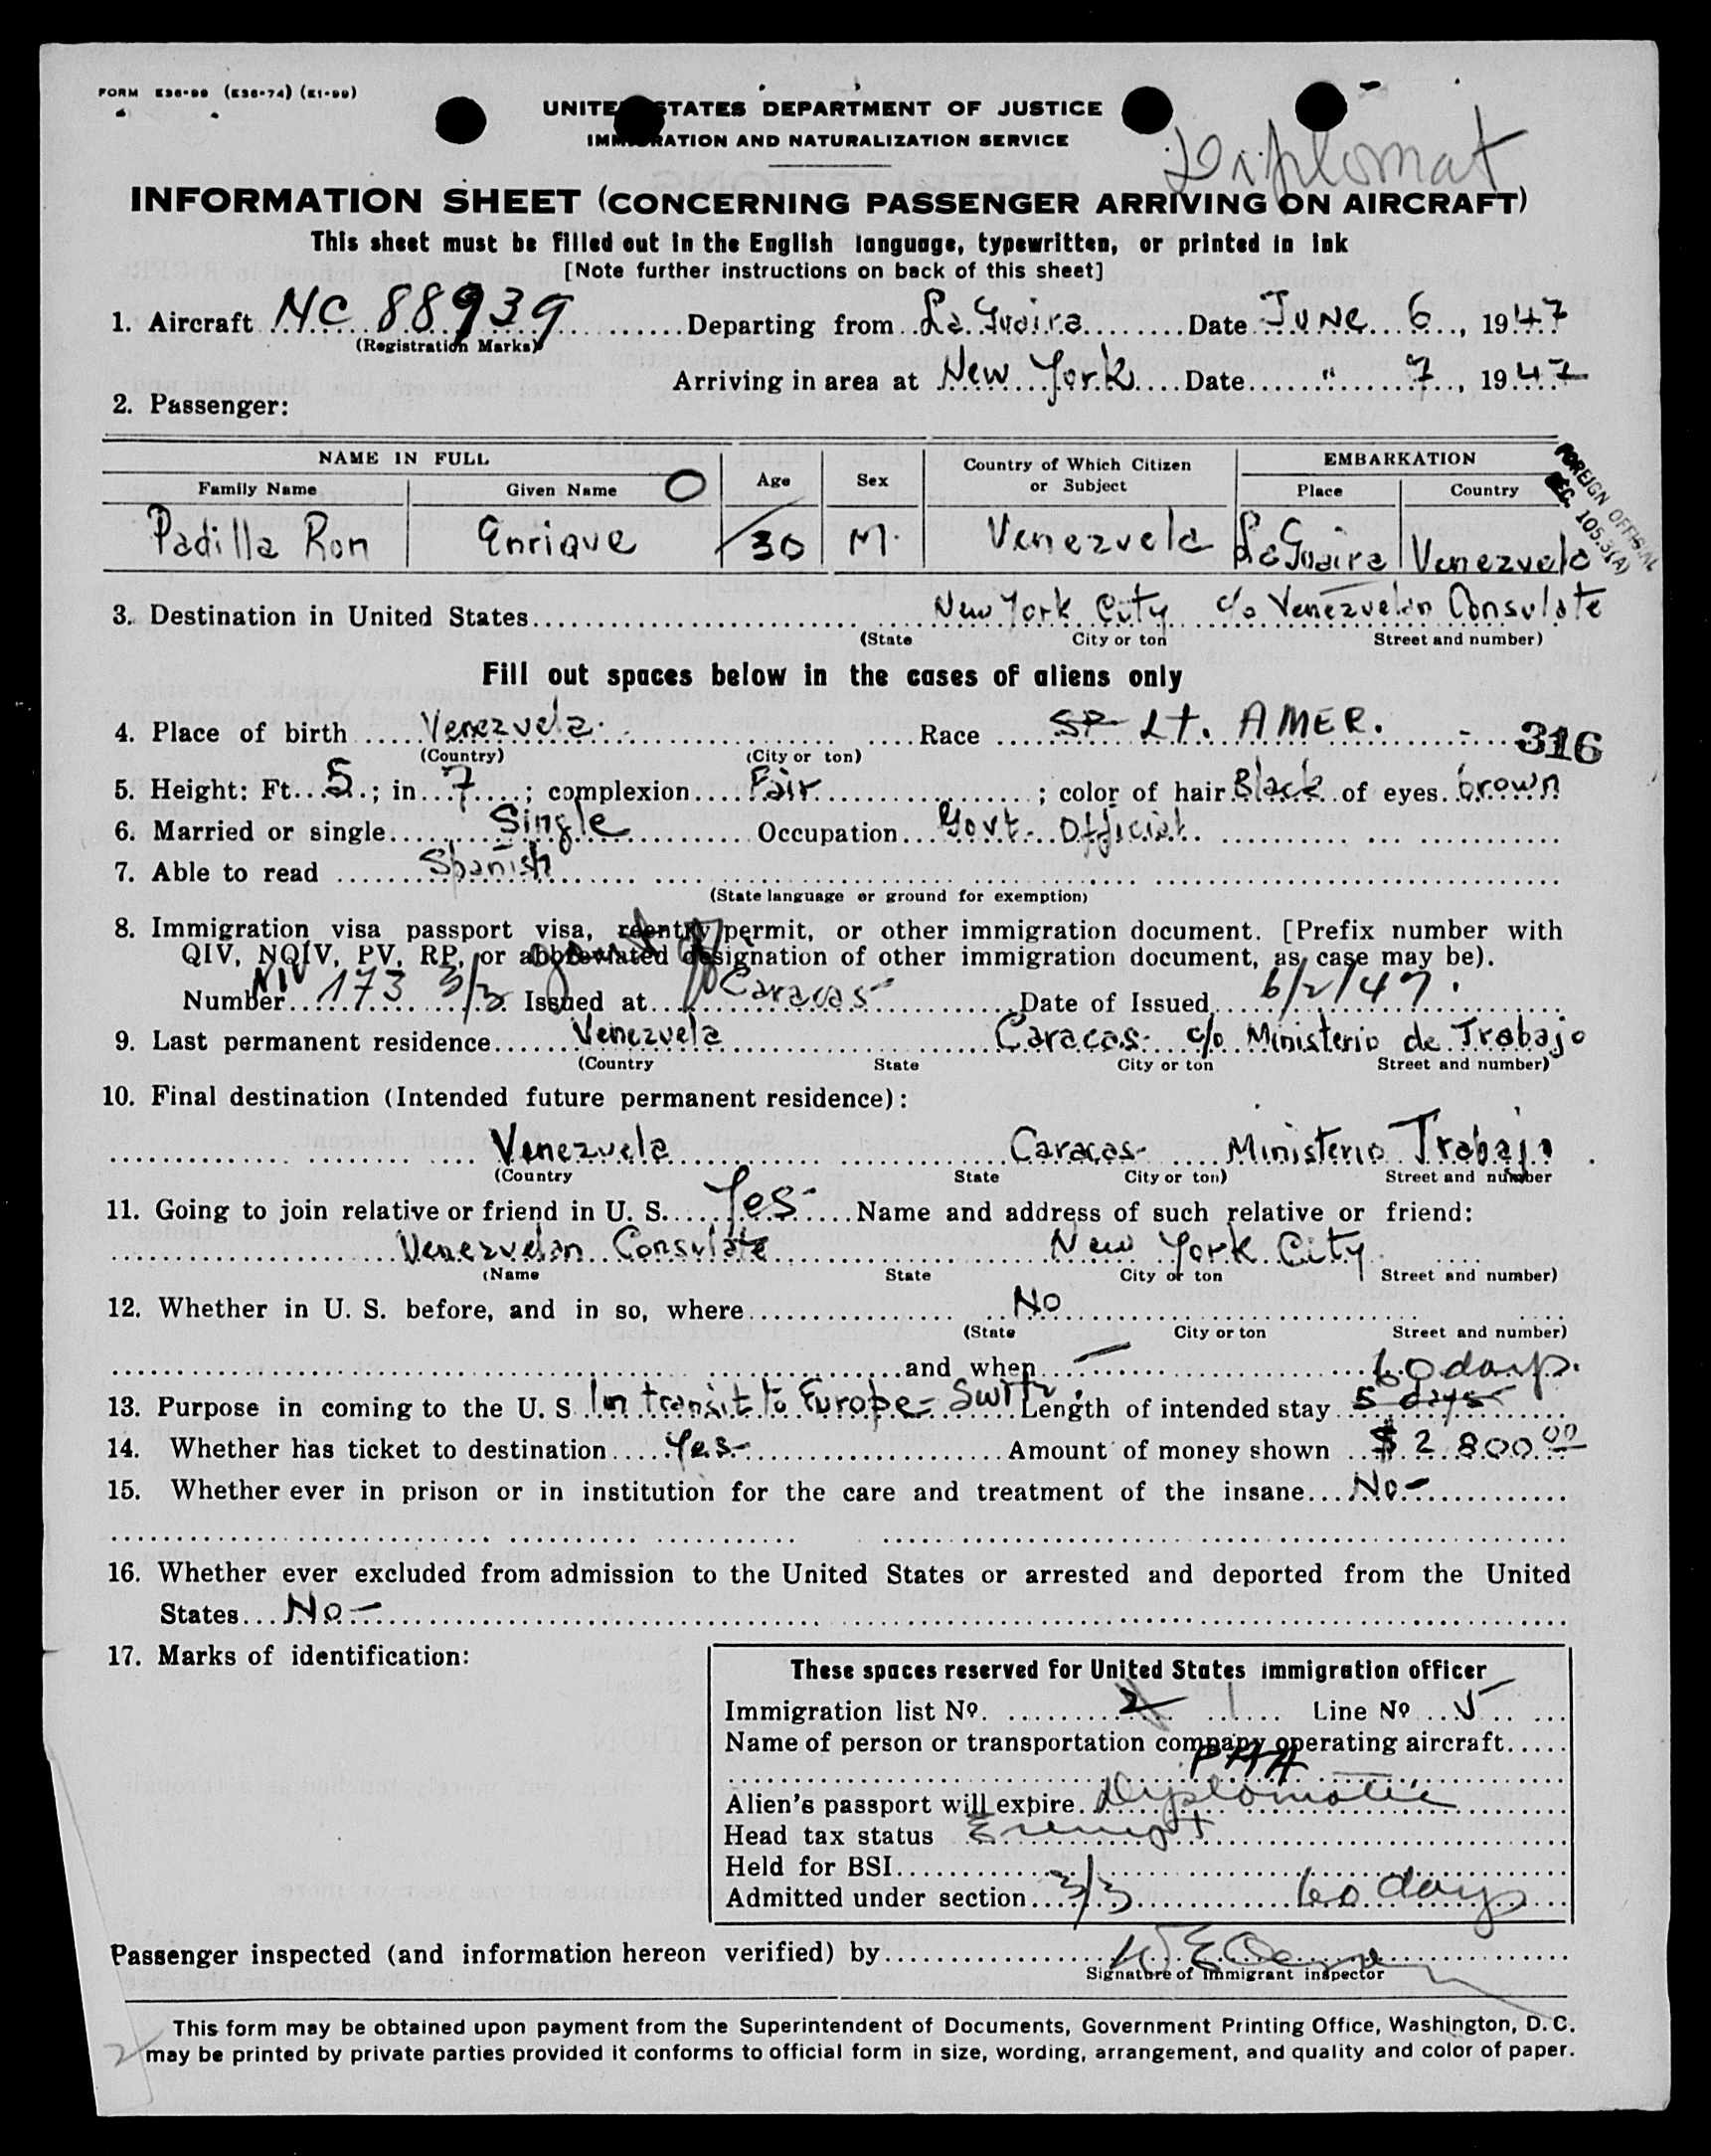 FORM E36-99 (E36-74) (E1-99)
UNITED STATES DEPARTMENT OF JUSTICE
IMMIGRATION AND NATURALIZATION SERVICE
Diplomat
INFORMATION SHEET (CONCERNING PASSENGER ARRIVING ON AIRCRAFT)
This sheet must be filled out in the English language, typewritten, or printed in ink
[Note further instructions on back of this sheet]
1. Aircraft NC 88939 Departing from La Guaira Date June 6, 1947
(Registration Marks)
Arriving in area at New York Date " 7, 1947
2. Passenger:
NAME IN FULL Age Sex Country of Which Citizen or Subject EMBARKATION
Family Name Given Name O Place Country
FOREIGN OFFICIAL
SEC. 105.3(A)
Padilla Ron Enrique 30 M. Venezuela La Guaira Venezuela
3. Destination in United States New York City c/o Venezuelan Consulate
(State City or ton Street and number)
Fill out spaces below in the cases of aliens only
4. Place of birth Venezuela Race SP Lt. AMER. 316
(Country) (City or ton)
5. Height: Ft. 5.; in. 7; complexion Fair; color of hair Black of eyes brown
6. Married or single Single Occupation Govt. Official
7. Able to read Spanish
(State language or ground for exemption)
8. Immigration visa passport visa, reentry permit, or other immigration document. [Prefix number with
QIV, NQIV, PV, RP, or abbreviated designation of other immigration document, as case may be).
NIV
Number 173 3/3 Issued at Caracas Date of Issued 6/2/47.
9. Last permanent residence Venezuela Caracas- c/o Ministerio de Trabajo
(Country State City or ton Street and number)
10. Final destination (Intended future permanent residence):
Venezuela Caracas- Ministerio Trabajo
(Country State City or ton) Street and number
11. Going to join relative or friend in U. S. Yes- Name and address of such relative or friend:
Venezuelan Consulate New York City
(Name State City or ton Street and number)
12. Whether in U. S. before, and in so, where No
(State City or ton Street and number)
and when — 60 days.
13. Purpose in coming to the U. S. In transit to Europe- Length of intended stay 5 days
14. Whether has ticket to destination Yes- Amount of money shown $2800.00
15. Whether ever in prison or in institution for the care and treatment of the insane No-
16. Whether ever excluded from admission to the United States or arrested and deported from the United
States No-
17. Marks of identification:
These spaces reserved for United States immigration officer
Immigration list No. 2 1 Line No 5
Name of person or transportation company operating aircraft
PAA
Alien's passport will expire Diplomatic
Head tax status Exempt
Held for BSI
Admitted under section 3/3 60 days
Passenger inspected (and information hereon verified) by
Signature of immigrant inspector
This form may be obtained upon payment from the Superintendent of Documents, Government Printing Office, Washington, D. C.
may be printed by private parties provided it conforms to official form in size, wording, arrangement, and quality and color of paper.